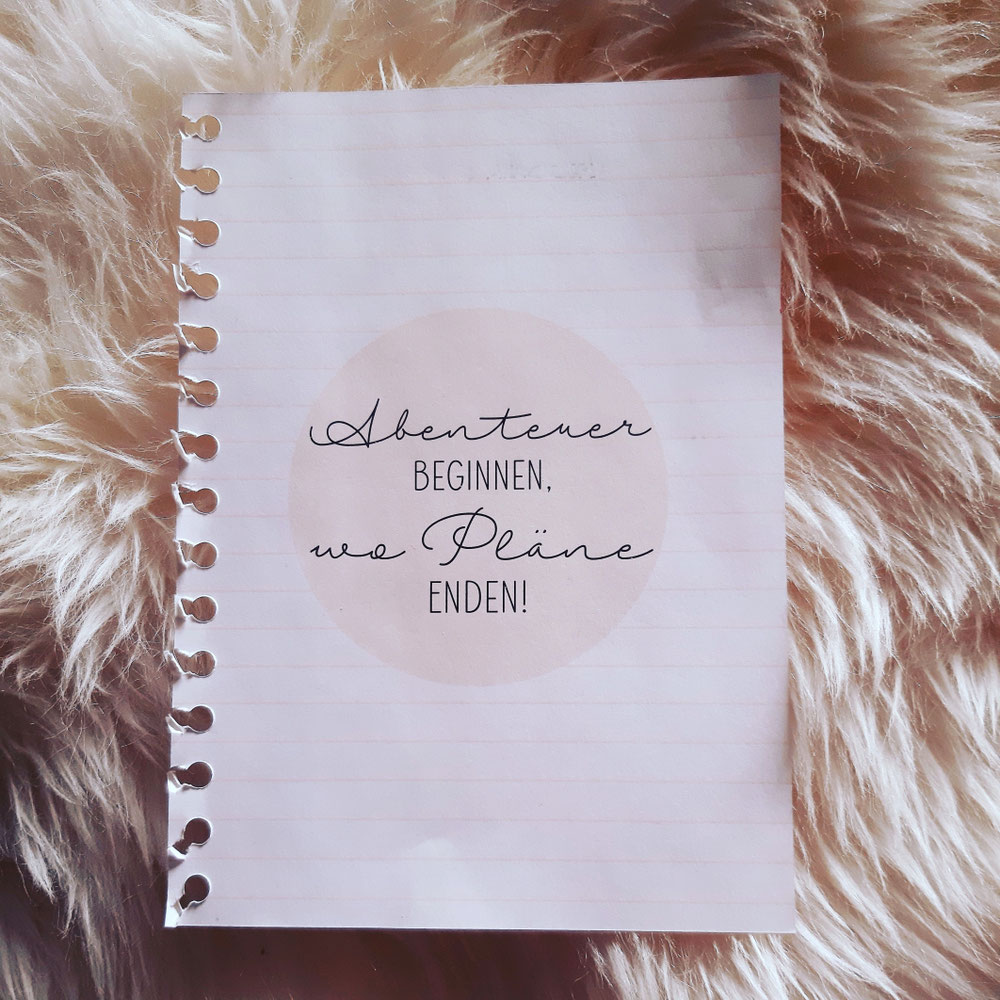 Abenteuer
BEGINNEN,
wo Pläne
ENDEN!